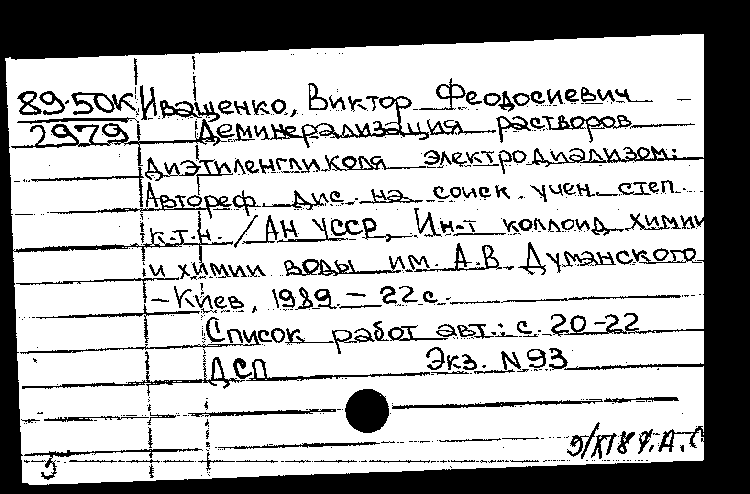 89-50К Иващенко, Виктор Феодосиевич
2979 Деминерализация растворов
диэтиленгликоля электродиализом:
Автореф. дис. на соиск. учен. степ.
к.т.н. / АН УССР, Ин-т коллоид. химии
и химии воды им. А.В. Думанского
– Киев, 1989. – 22 с.
Список работ авт.: с. 20-22
ДСП Экз. N 93
5